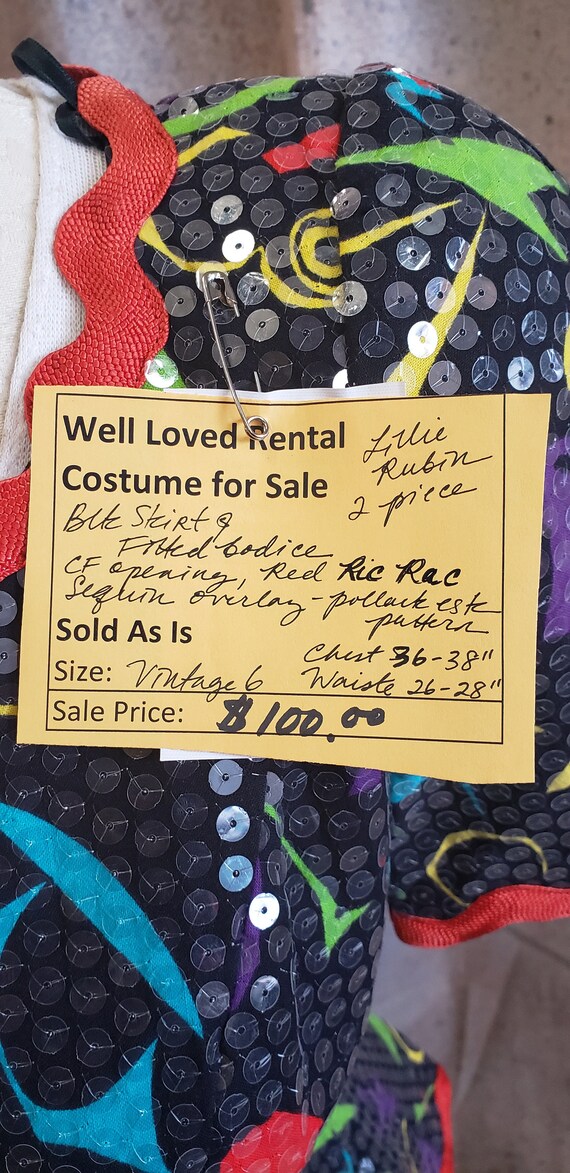 Well Loved Rental
Costume for Sale
Lillie
Rubin
2 piece
Blk Skirt &
Fitted bodice
CF opening, Red Ric Rac
Sequin overlay - pollack esk
pattern
Sold As Is
Chest 36-38"
Size: Vintage 6
Waiste 26-28"
Sale Price: $100.00